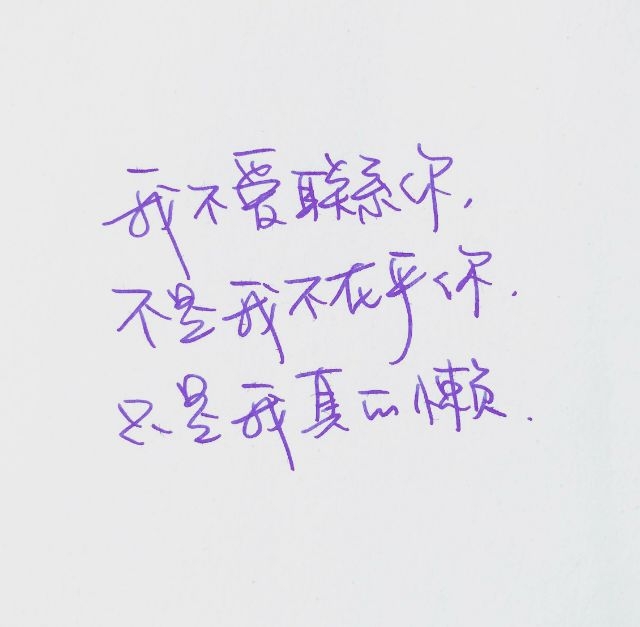 我不爱联系你，
不是我不在乎你.
只是我真的懒.